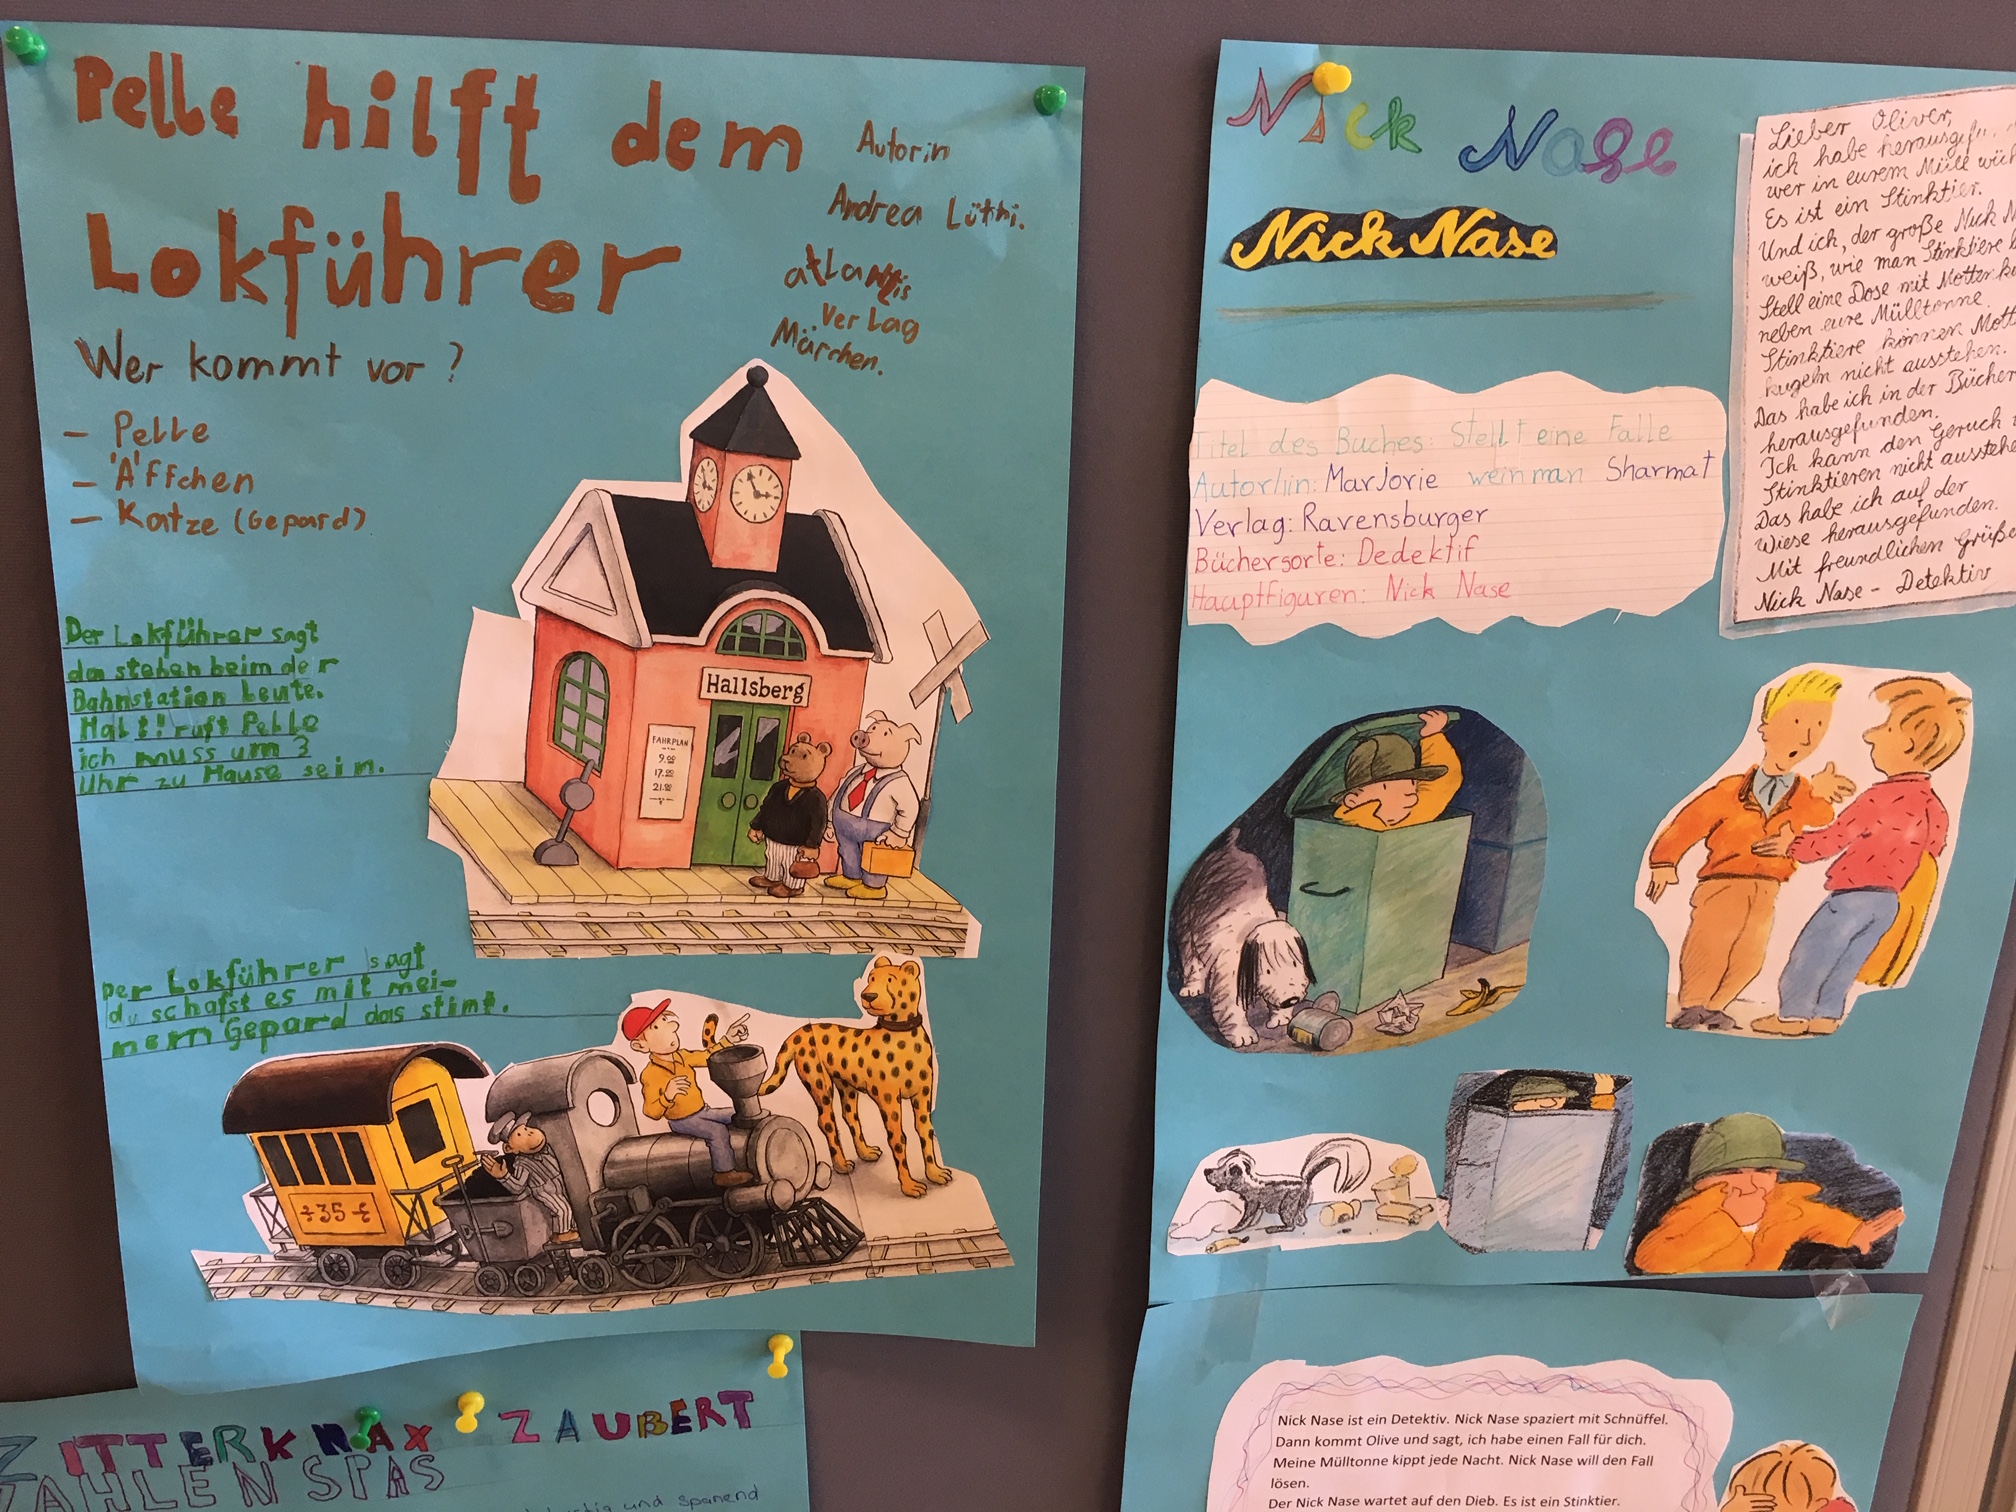 Pelle hilft dem
Lokführer
Autorin
Andrea Lüthi.
atlantis
Verlag
Märchen.
Wer kommt vor?
- Pelle
- Äffchen
- Katze (Gepard)
Der Lokführer sagt
da stehen beim der
Bahnstation Leute.
Halt! ruft Pelle
ich muss um 3
Uhr zu Hause sein.
Hallsberg
FAHRPLAN
9.00
17.00
21.00
Der Lokführer sagt
du schafst es mit mei-
nem Gepard das stimt.
35
ZITTERKNAX ZAUBERT
ZAHLENSPAS
und spanend
Nick Nase
Nick Nase
Titel des Buches: Stellt eine Falle
Autor/in: Marjorie weinman Sharmat
Verlag: Ravensburger
Büchersorte: Dedektif
Hauptfiguren: Nick Nase
Lieber Oliver,
ich habe
wer in eurem Müll
Es ist ein Stinktier.
Und ich, der große Nick
weiß, wie man Stinktiere
Stell eine Dose mit
neben eure Mülltonne.
Stinktiere können
kugeln nicht ausstehen.
Das habe ich in der
herausgefunden.
Ich kann den Geruch
Stinktieren nicht
Das habe ich auf der
Wiese herausgefunden.
Mit freundlichen
Nick Nase - Detektiv
Nick Nase ist ein Detektiv. Nick Nase spaziert mit Schnüffel.
Dann kommt Olive und sagt, ich habe einen Fall für dich.
Meine Mülltonne kippt jede Nacht. Nick Nase will den Fall
lösen.
Der Nick Nase wartet auf den Dieb. Es ist ein Stinktier.